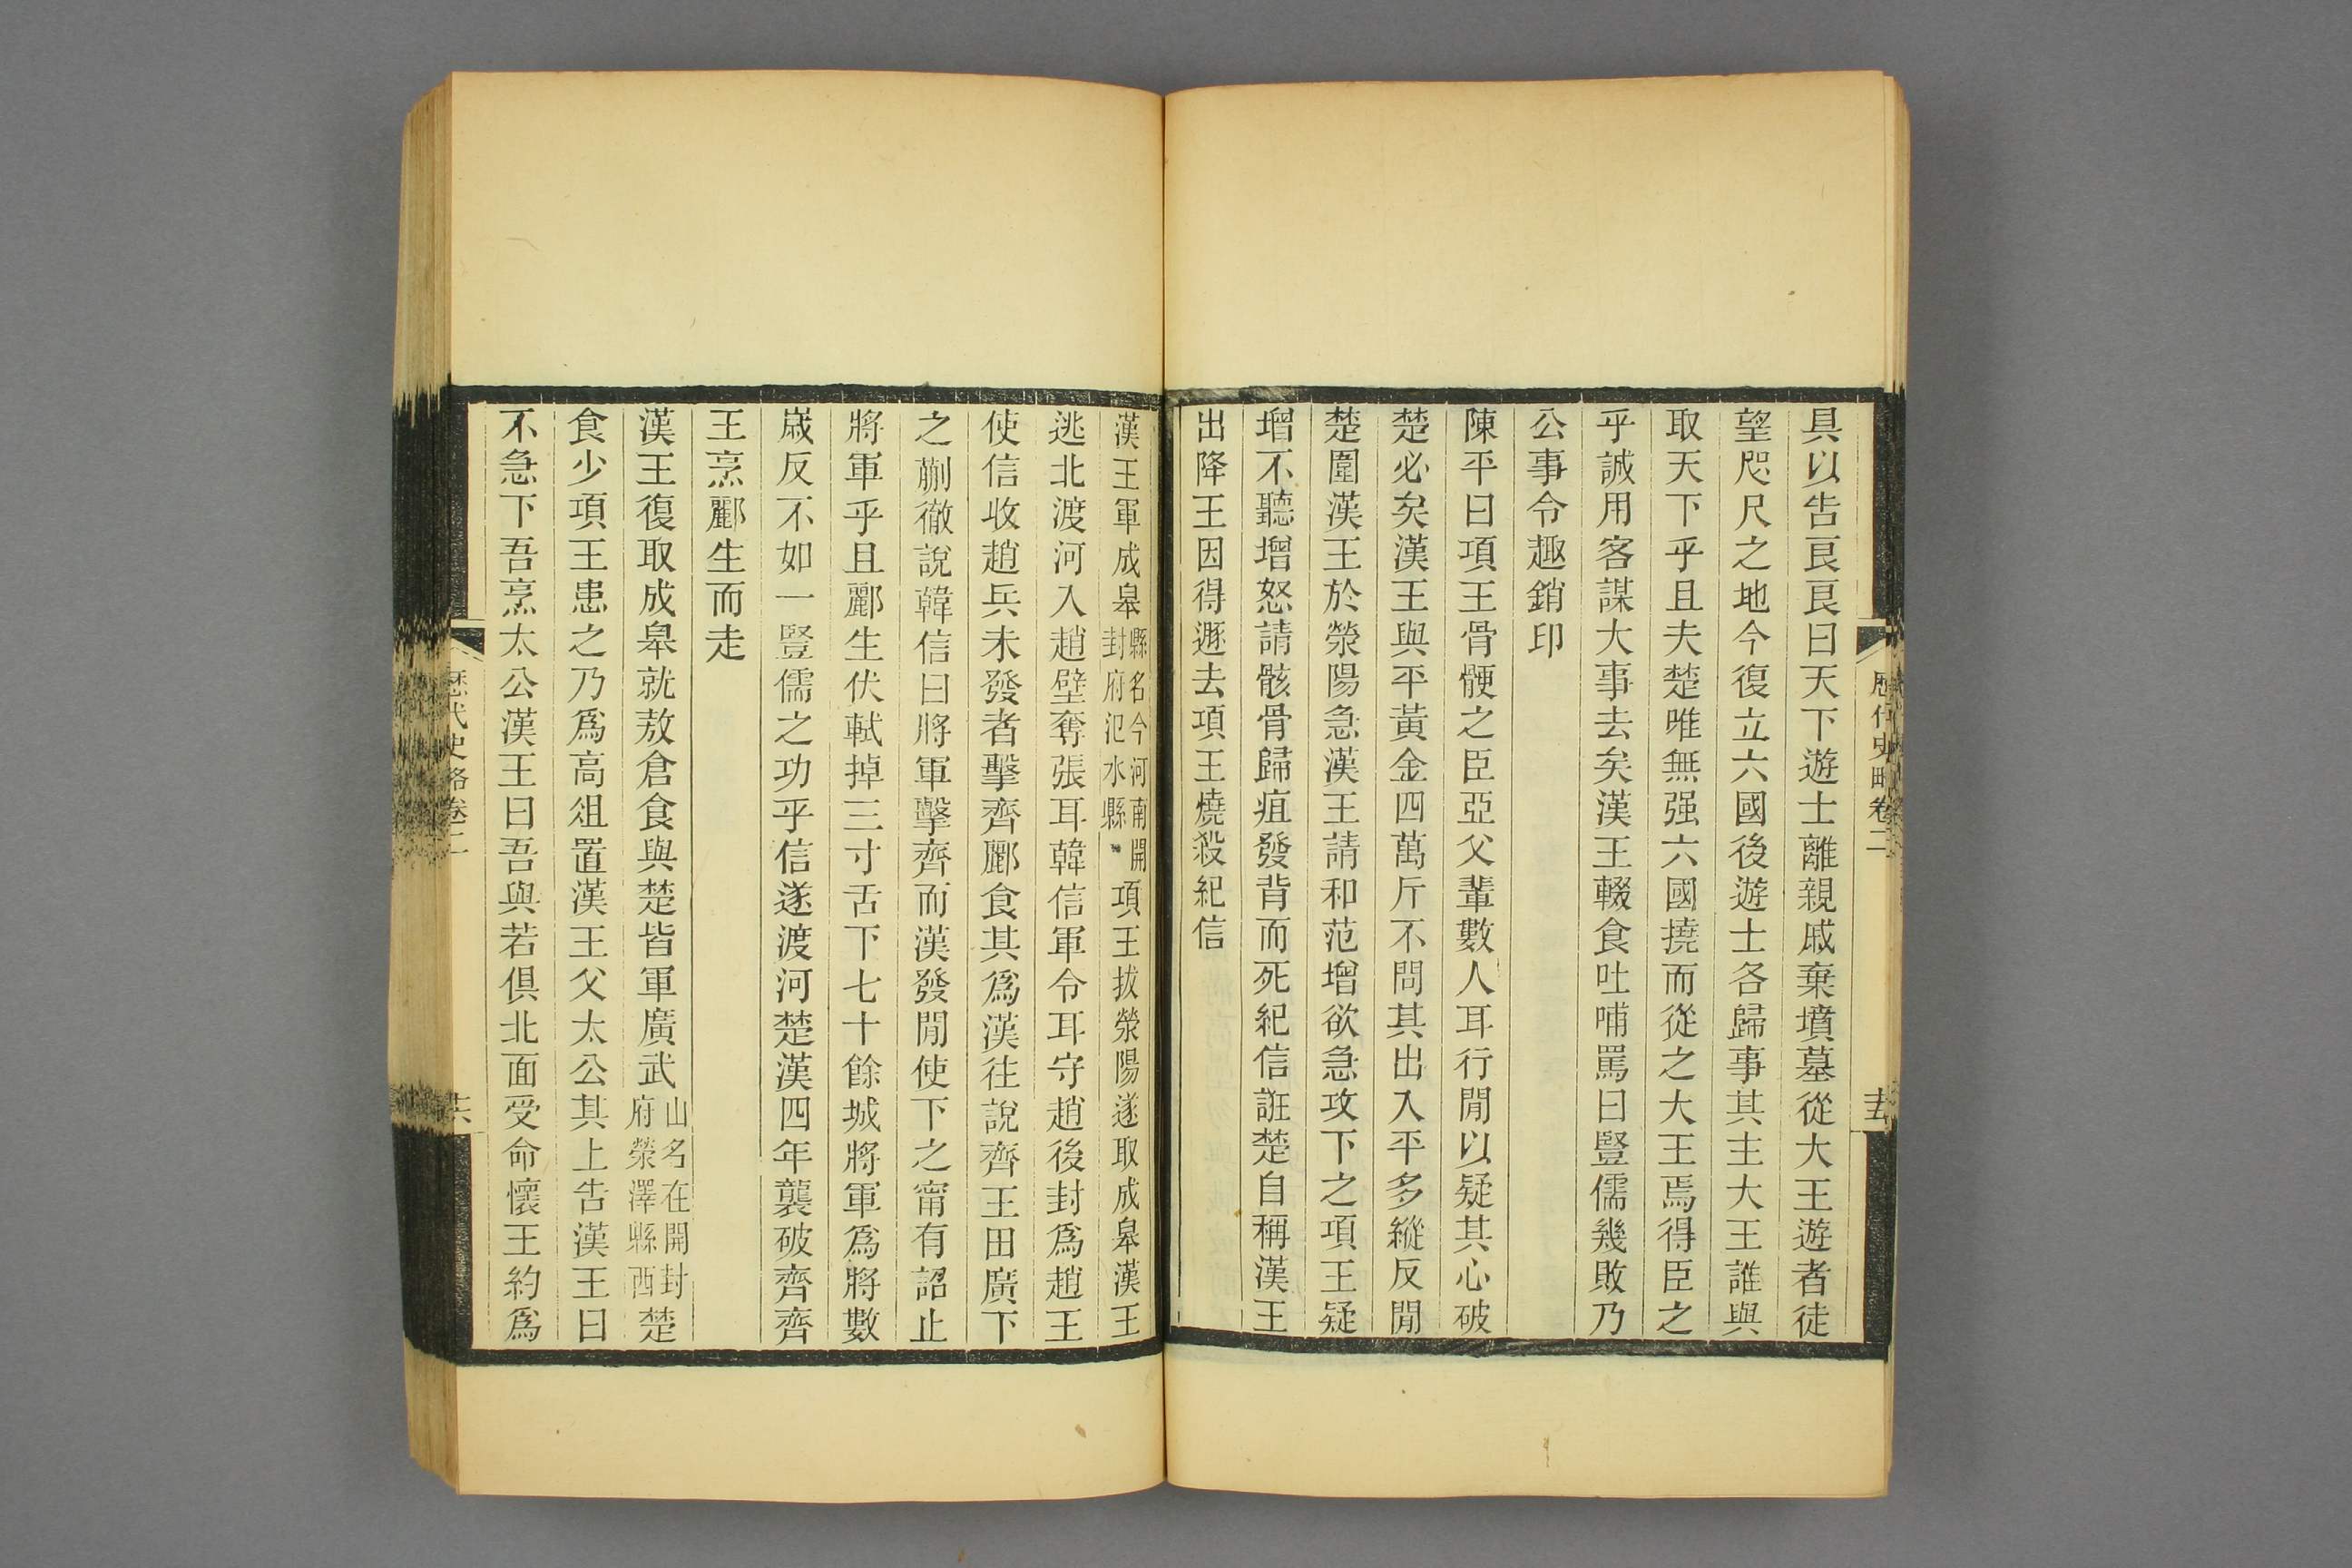 歷代史略卷二
十五
具以告良良曰天下遊士離親戚棄墳墓從大王遊者徒
望咫尺之地今復立六國後遊士各歸事其主大王誰與
取天下乎且夫楚唯無强六國撓而從之大王焉得臣之
乎誠用客謀大事去矣漢王輟食吐哺罵曰豎儒幾敗乃
公事令趣銷印
陳平曰項王骨骾之臣亞父輩數人耳行閒以疑其心破
楚必矣漢王與平黃金四萬斤不問其出入平多縱反閒
楚圍漢王於滎陽急漢王請和范增欲急攻下之項王疑
增不聽增怒請骸骨歸疽發背而死紀信誑楚自稱漢王
出降王因得遯去項王燒殺紀信
漢王軍成皋縣名今河南開封府汜水縣項王拔滎陽遂取成皋漢王
逃北渡河入趙壁奪張耳韓信軍令耳守趙後封爲趙王
使信收趙兵未發者擊齊酈食其爲漢往說齊王田廣下
之蒯徹說韓信曰將軍擊齊而漢發閒使下之甯有詔止
將軍乎且酈生伏軾掉三寸舌下七十餘城將軍爲將數
歲反不如一豎儒之功乎信遂渡河楚漢四年襲破齊齊
王烹酈生而走
漢王復取成皋就敖倉食與楚皆軍廣武山名在開封府滎澤縣西楚
食少項王患之乃爲高俎置漢王父太公其上告漢王曰
不急下吾烹太公漢王曰吾與若俱北面受命懷王約爲
歷代史略卷二
十六